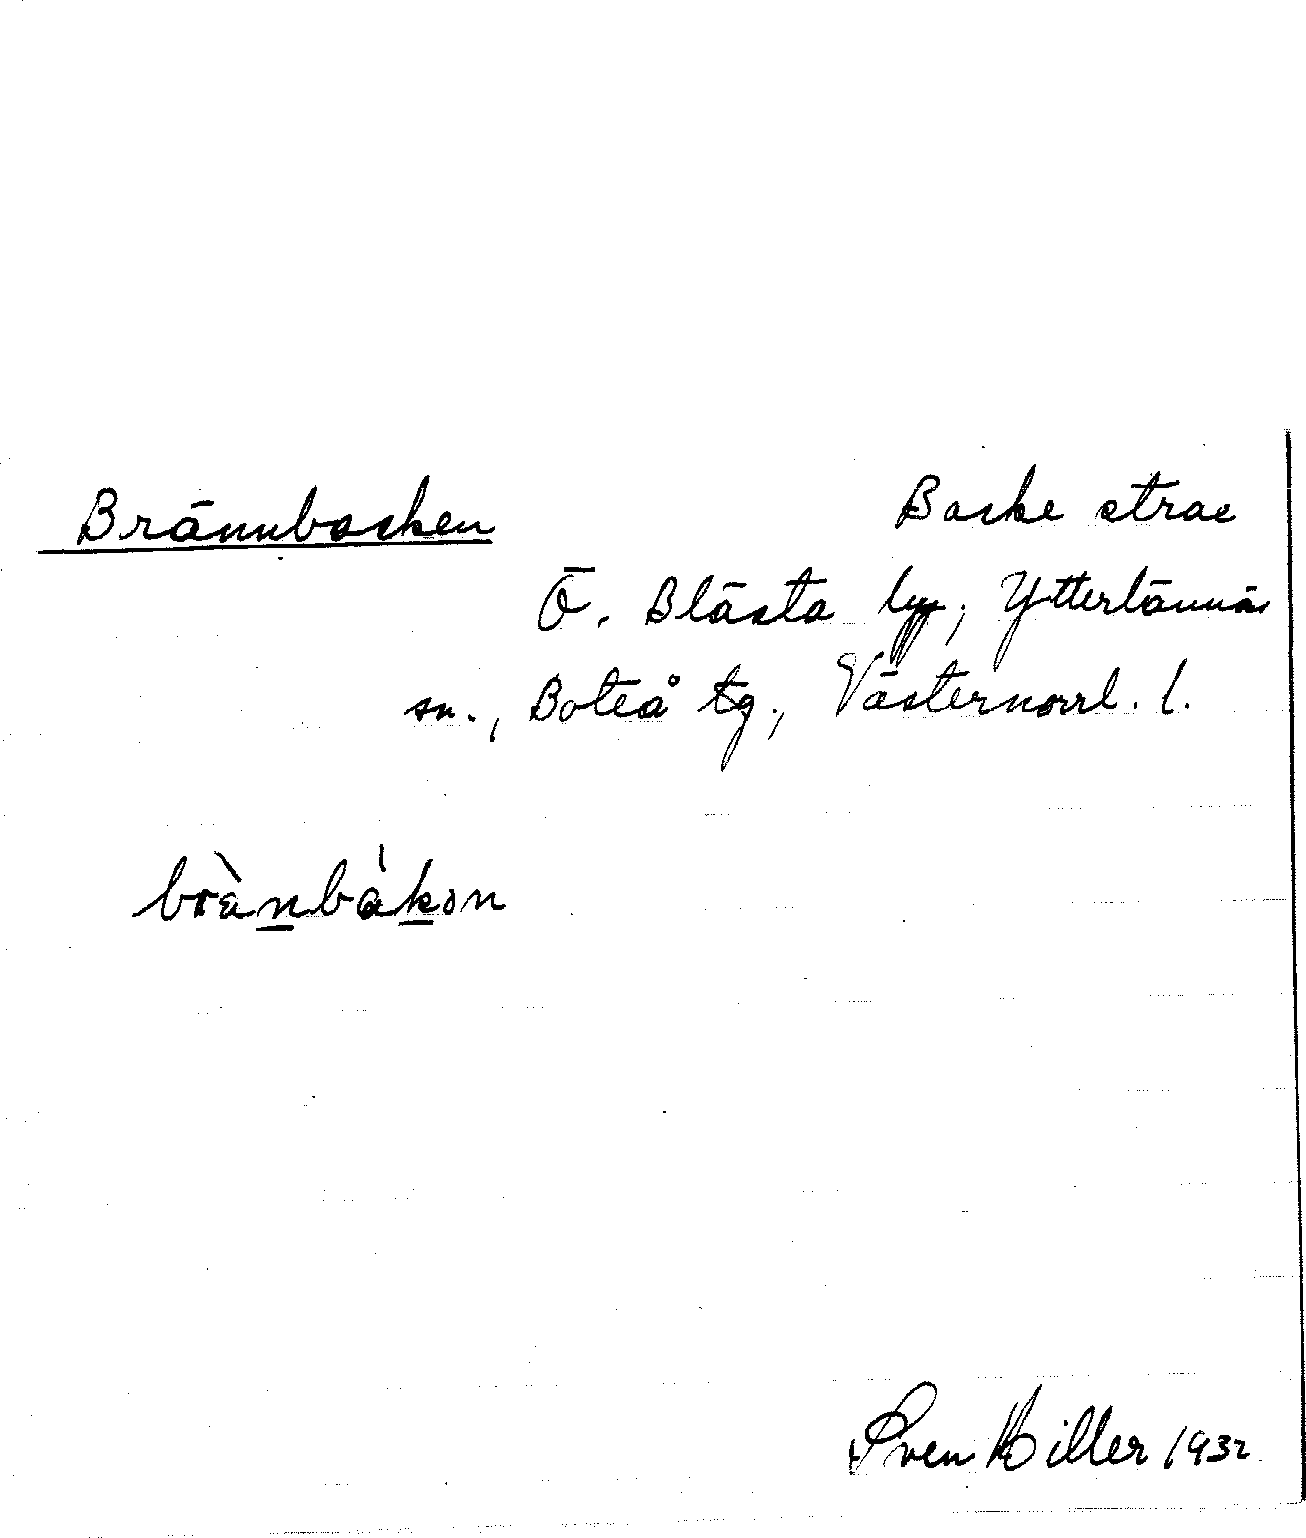 Brännbacken
Backe strax
Ö. Blästa by, Ytterlännäs
sn., Boteå tg., Västernorrl. l.
brὰnbákon
Sven Hiller 1932